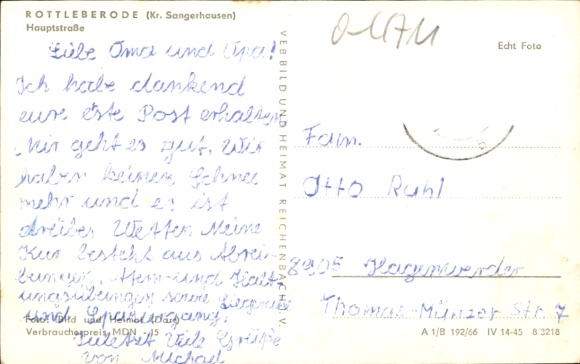 ROTTLEBERODE (Kr. Sangerhausen)
Hauptstraße
Liebe Oma und Opa!
Ich habe dankend
eure erste Post erhalten
Mir geht es gut. Wir
haben keinen Schnee
mehr und es ist
Wetter Meine
Kur besteht aus Abrei-
bungen, Atem- und Halt-
ungsübungen sowie
und Spaziergang.
Zuletzt Viele Grüße
von Michael
Foto: Bild und Heimat
Verbraucherpreis MDN -,15
VEB BILD UND HEIMAT REICHENBACH I. V.
Echt Foto
Fam.
Otto Ruhl
8905 Hagenwerder
Thomas-Münzer Str. 7
A 1/B 192/66 IV 14-45 8 3218